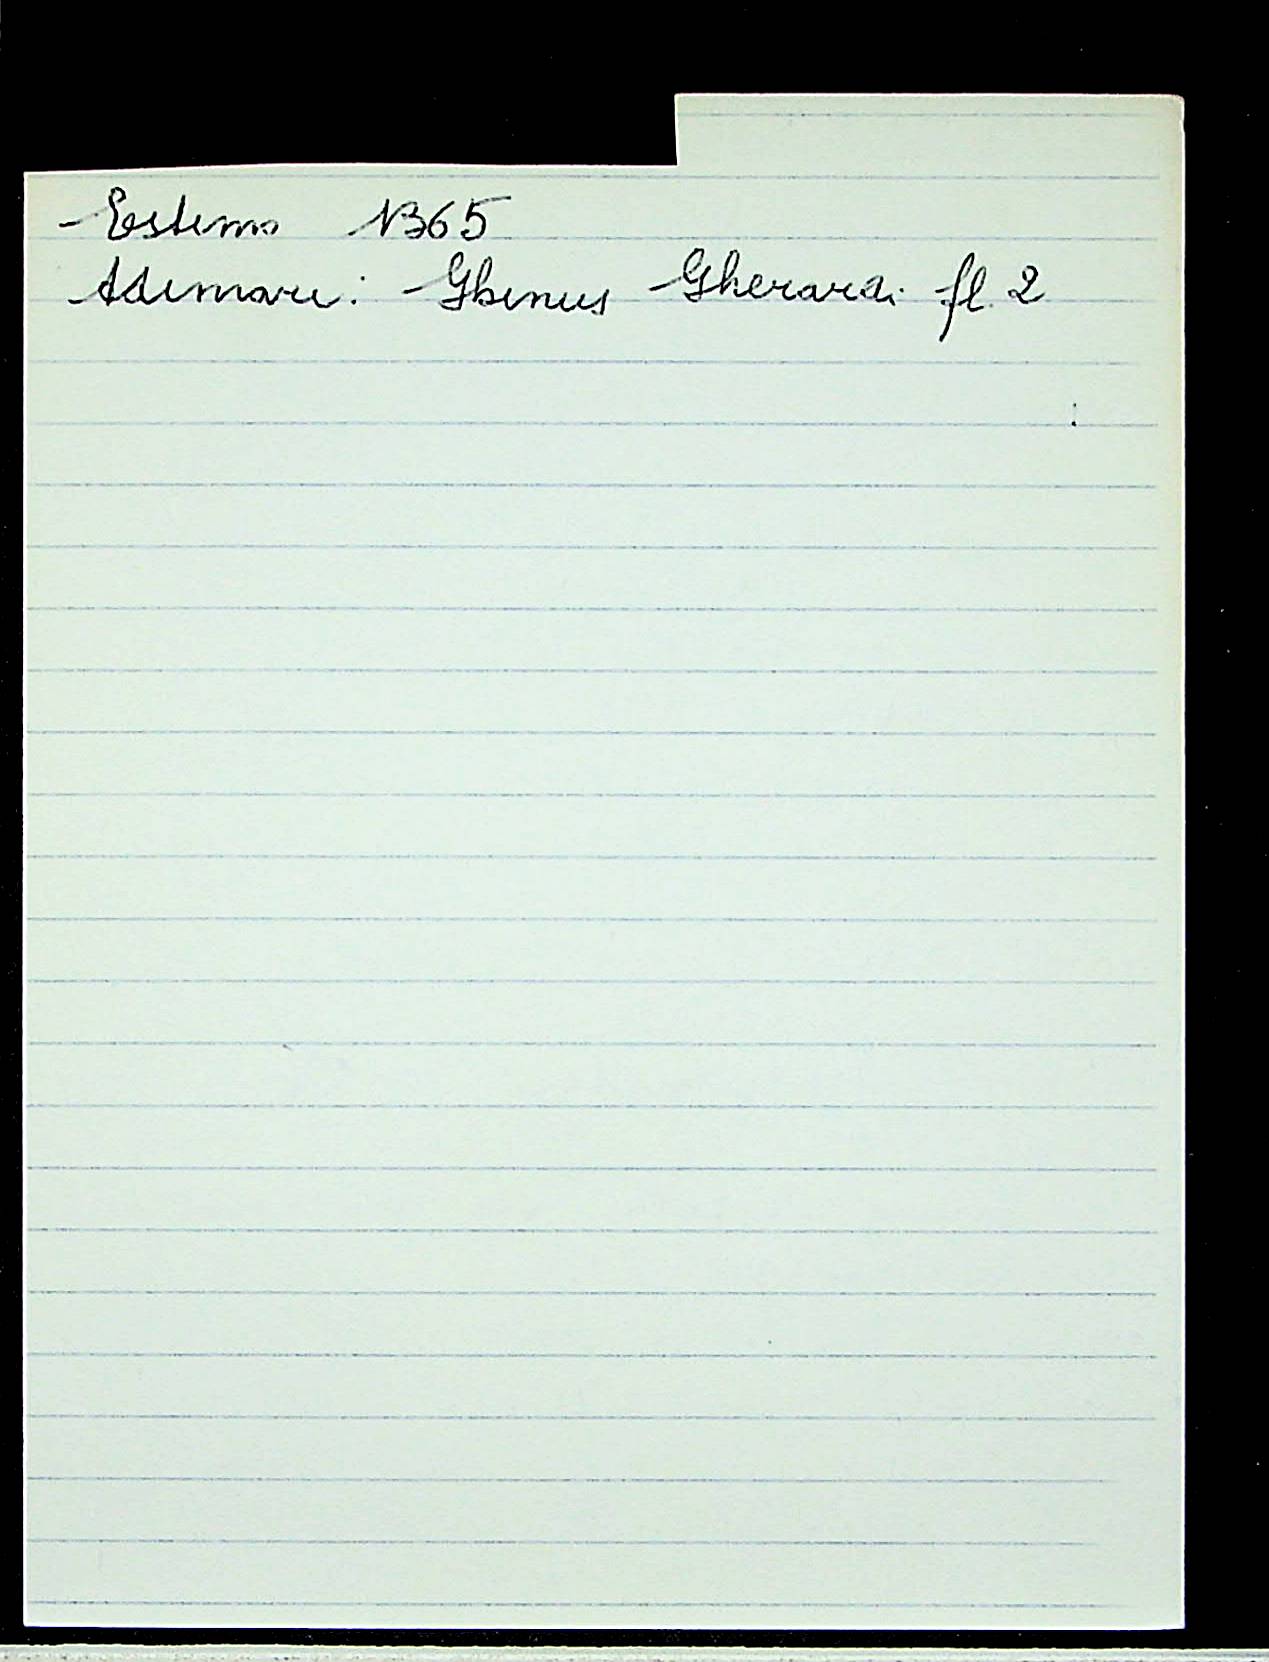 Estimo 1365
Adimari: Ghinus Gherardi fl. 2